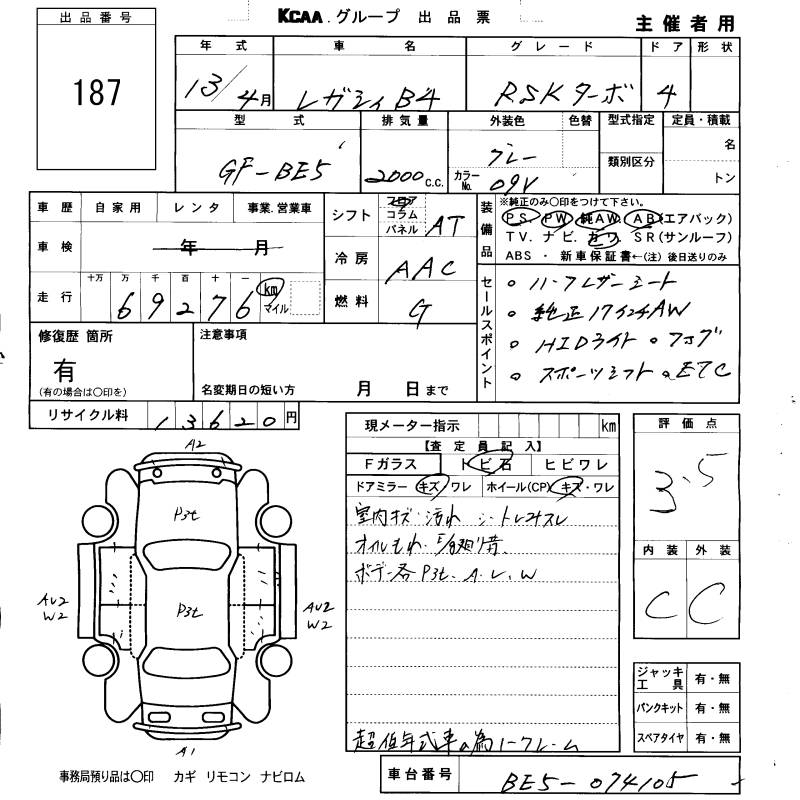 KCAA.グループ 出品票
主催者用
出品番号
187
年式 車名 グレード ドア 形状
13/4月 レガシィB4 RSKターボ 4
型式 排気量 外装色 色替 型式指定 定員・積載
GF-BE5 2000c.c. グレー 名
カラーNo. 09V 類別区分 トン
車歴 自家用 レンタ 事業.営業車
シフト フロア コラム パネル AT
車検 年 月
冷房 AAC
走行 十万 万 千 百 十 一
69276 km マイル
燃料 G
装備品
※純正のみ〇印をつけて下さい。
PS. PW 純AW. AB(エアバック)
TV. ナビ. カワ. SR(サンルーフ)
ABS ・ 新車保証書←(注)後日送りのみ
セールスポイント
○ ハーフレザーシート
○ 純正17インチAW
○ HIDライト ○ フォグ
○ スポーツシフト ○ ETC
修復歴 箇所
有
(有の場合は〇印を)
注意事項
名変期日の短い方 月 日まで
リサイクル料 13620円
現メーター指示 km
【査定員記入】
Fガラス トビ石 ヒビワレ
ドアミラー キズ/ワレ ホイール(CP) キズ・ワレ
室内キズ・汚れ シートレザースレ
オイルもれ・
ボデー各P3t、A、U、W
超低年式車の為ノークレーム
評価点
3.5
内装 外装
C C
ジャッキ工具 有・無
パンクキット 有・無
スペアタイヤ 有・無
A2
P3t
P3t
AU2
W2
AU2
W2
A1
事務局預り品は〇印 カギ リモコン ナビロム
車台番号 BE5-074105